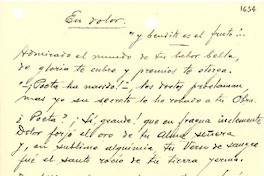 1654
En dolor.
"y bendito es el fruto"...
Admirado el mundo de tu labor bella,
de gloria te cubre y premios te otorga.
"¡Poeta ha nacido!", los doctos proclaman,
mas yo su secreto lo he robado a tu Obra.
¿Poeta? ¡Sí, grande! que en fragua inclemente
Dolor forjó el oro de tu Alma señera
y, en sublime alquimia, tu Verso de sangre
fué el santo rocío de tu tierra yerma.